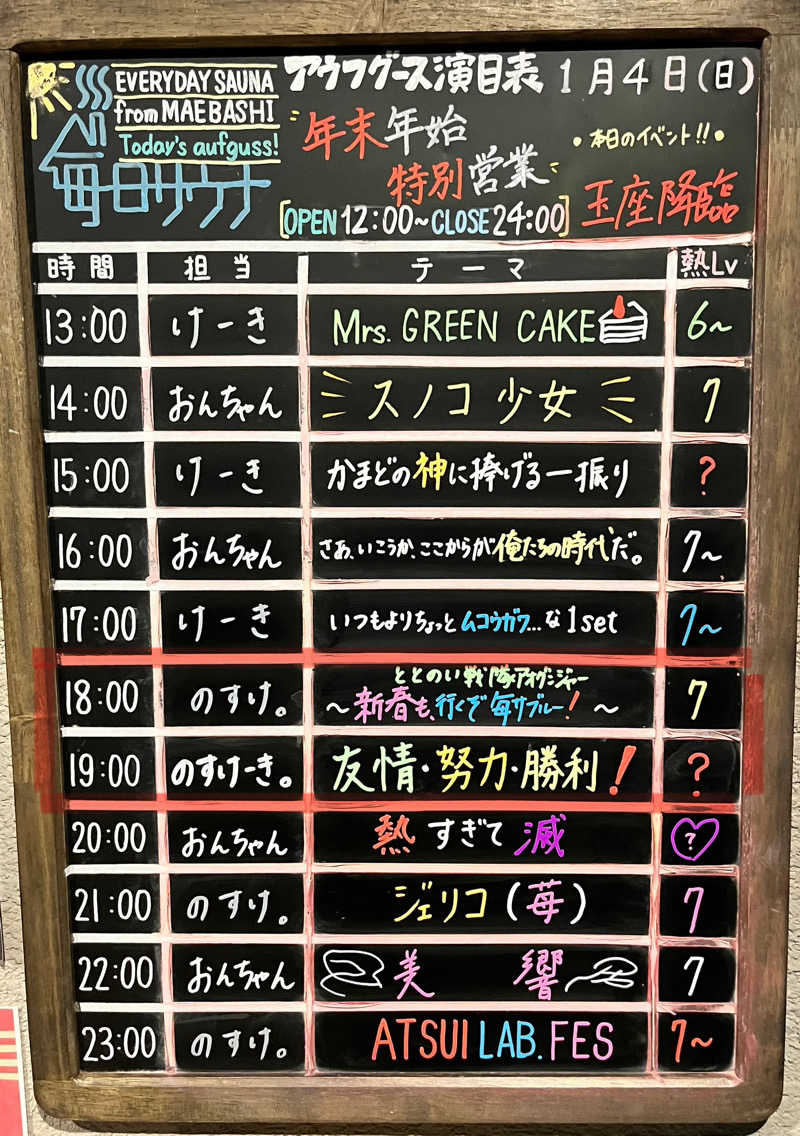 EVERYDAY SAUNA
from MAEBASHI
Today's aufguss!
毎日サウナ
アウフグース演目表 1月4日(日)
年末年始
特別営業
[OPEN 12:00~CLOSE 24:00]
•本日のイベント!!•
玉座降臨
時間 担当 テーマ 熱Lv
13:00 けーき Mrs. GREEN CAKE 6~
14:00 おんちゃん スノコ少女 7
15:00 けーき かまどの神に捧げる一振り ?
16:00 おんちゃん さあ、いこうか、ここからが俺たちの時代だ。 7~
17:00 けーき いつもよりちょっとムコウガワ...な1set 7~
ととのい戦隊アオグンジャー
18:00 のすけ。 ~新春も、行くぞ毎サブルー!~ 7
19:00 のすけーき。 友情・努力・勝利! ?
20:00 おんちゃん 熱すぎて滅 ?
21:00 のすけ。 ジェリコ(苺) 7
22:00 おんちゃん 美響 7
23:00 のすけ。 ATSUI LAB. FES 7~